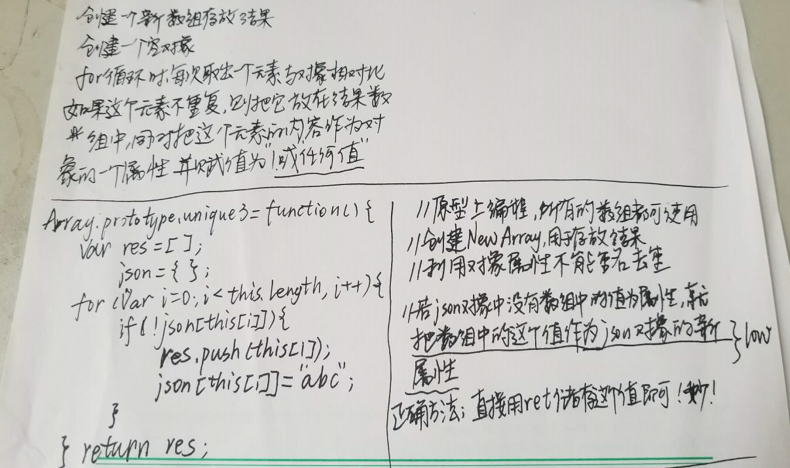 创建一个新数组存放结果
创建一个空对象
for循环时,每次取出一个元素与对象相对比
如果这个元素不重复,则把它放在结果数
组中,同时把这个元素的内容作为对
象的一个属性,并赋值为"1或任何值"
Array.prototype.unique3=function(){
var res=[];
json={};
for(Var i=0;i<this.length,i++){
if(!json[this[i]]){
res.push(this[i]);
json[this[i]]="abc";
}
} return res;
//原型上编程,所有的数组都可使用
//创建New Array,用于存放结果
//利用对象属性不能重名去重
//若json对象中没有数组中的值为属性,就
把数组中的这个值作为json对象的新
属性
} low
正确方法:直接用ret储存这个值即可!妙!